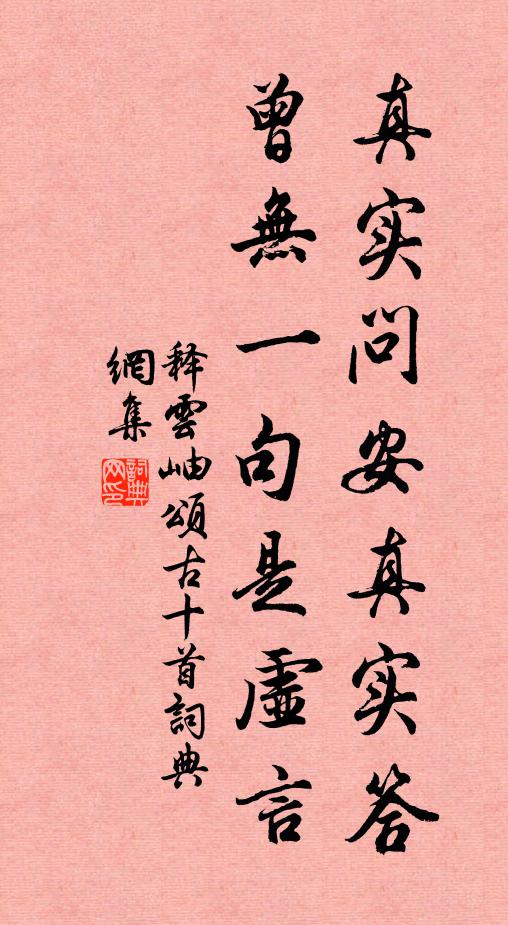 真实问安真实答
曾無一句是虛言
释雲岫頌古十首詞典
網集
詞典
网印